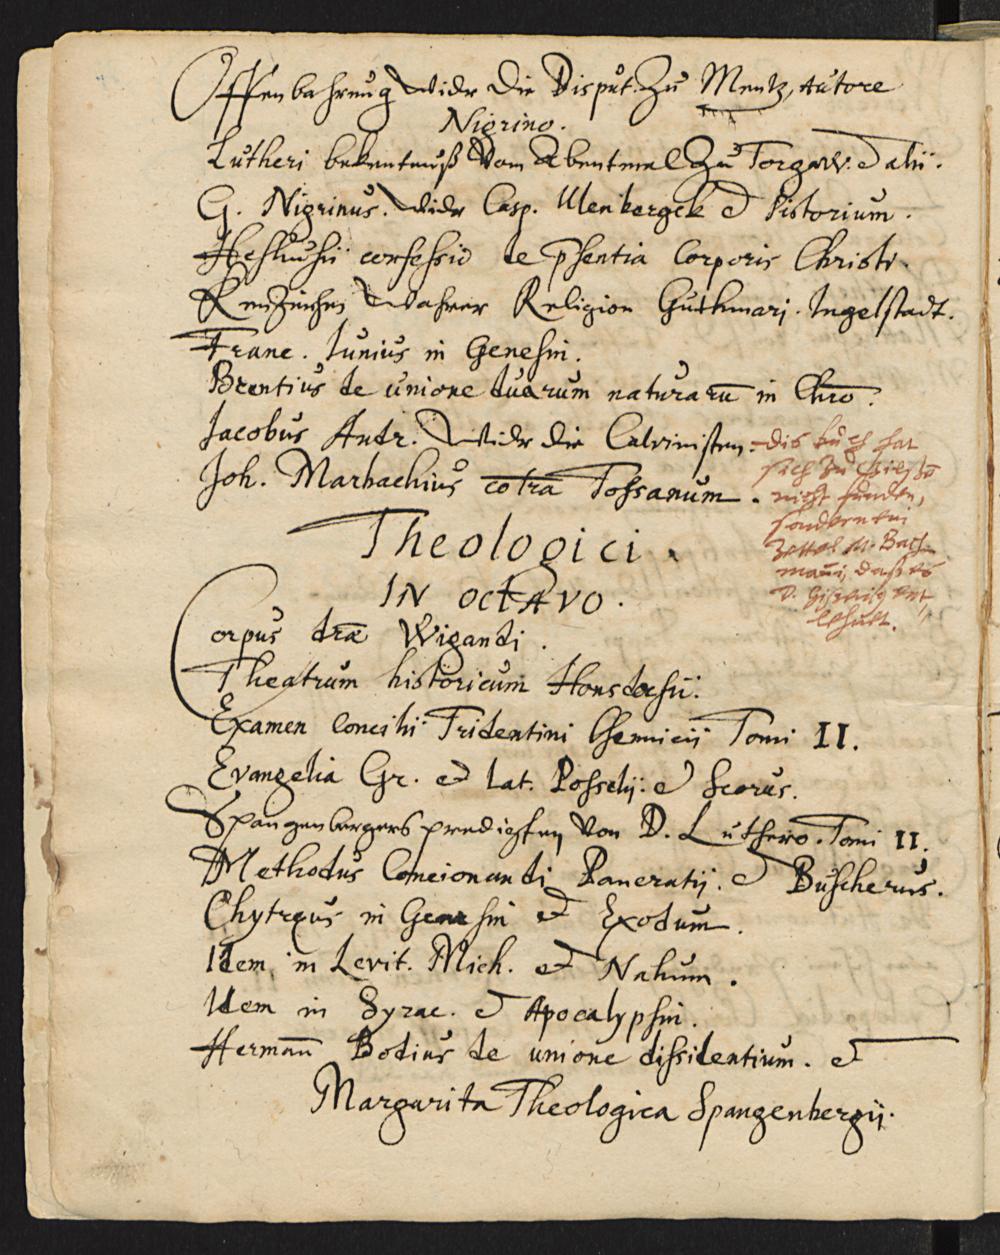 Offenbahrung Wider die Disput. Zu Mentz, Autore
Nigrino.
Lutheri bekentnuß Vom Abentmal Zu Torgaw. et alii.
G. Nigrinus. Wider Casp. Ulenbergek et Pistorium.
Heshusii confessio de pħsentia Corporis Christi.
Kenzeichen Wahrer Religion Guthmarj. Ingelstadt.
Franc. Iunius in Genesin.
Brentius de unione duarum naturarū in Chr̄o.
Jacobus Andr. Wider die Calvinisten.
Joh. Marbachius cōtra Tossanum.
dis buch hat
sich
nicht funden,
sondern ein
Zettel M. Bach
manni, daß es
D. ent
lehnet.
Theologici.
IN OCTAVO.
Corpus dr̄ae Wigandi.
Theatrum historicum Honsdorfii.
Examen Concilii Tridentini Chemnicii Tomi II.
Evangelia Gr. et Lat. Posselij. et Scorus.
Spangenbergers predigten Von D. Luthero. Tomi II.
Methodus Concionandi Pancratij. et Buscherus.
Chytreus in Genesin et Exodum.
Idem in Levit. Mich. et Nahum.
Idem in Syrac. et Apocalypsin.
Hermañ Bodius de unione dissidentium. et
Margarita Theologica Spangenbergij.